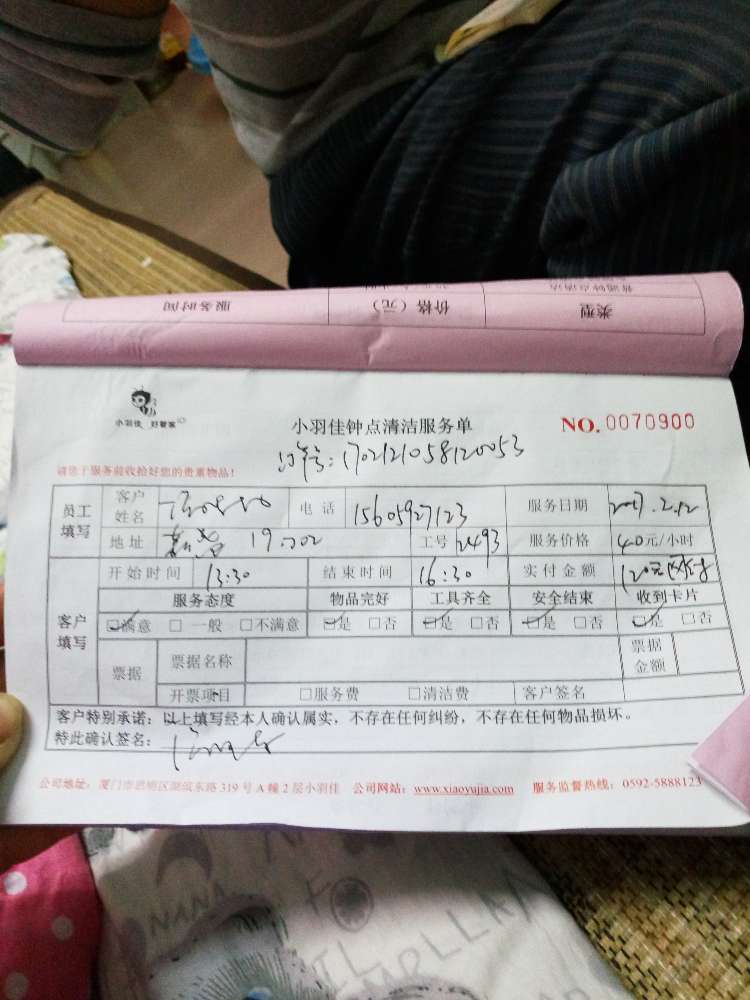 服务时间 价格（元） 类型
小羽佳 好管家
小羽佳钟点清洁服务单
NO. 0070900
1702121058120053
请您于服务前收拾好您的贵重物品！
员工填写 客户姓名 电话 15605927123 服务日期 2017.2.12
地址 工号 2493 服务价格 40元/小时
开始时间 13:30 结束时间 16:30 实付金额 120元
客户填写 服务态度 物品完好 工具齐全 安全结束 收到卡片
☑满意 □一般 □不满意 ☑是 □否 ☑是 □否 ☑是 □否 ☑是 □否
票据 票据名称 票据金额
开票项目 □服务费 □清洁费 客户签名
客户特别承诺：以上填写经本人确认属实，不存在任何纠纷，不存在任何物品损坏。
特此确认签名：
公司地址：厦门市思明区湖滨东路319号A幢2层小羽佳 公司网站：www.xiaoyujia.com 服务监督热线：0592-5888123
NANA